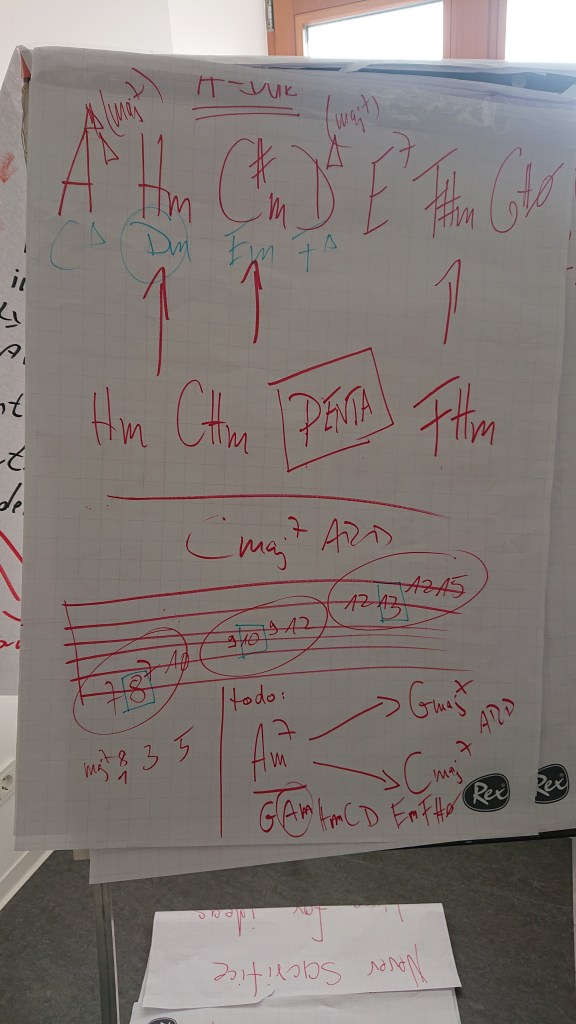 A-DUR
(maj7) (maj7)
A△ Hm C#m D△ E7 F#m G#ø
C△ Dm Em F△
Hm C#m PENTA F#m
Cmaj7 ARP
7 8 7 10 9 10 9 12 12 13 12 15
maj7 8 3 5
1
todo:
Am7 → Gmaj7
→ Cmaj7 ARP
G Am Hm C D Em F#ø
Rex
Rex
Never sacrifice
for ideas